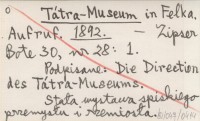 o Tátra-Museum in Felka.
Aufruf. 1892. — Zipser
Bote 30, nr 28: 1.
Podpisane: Die Direction
des Tátra-Museums.
Stała wystawa spiskiego
przemysłu i rzemiosła.